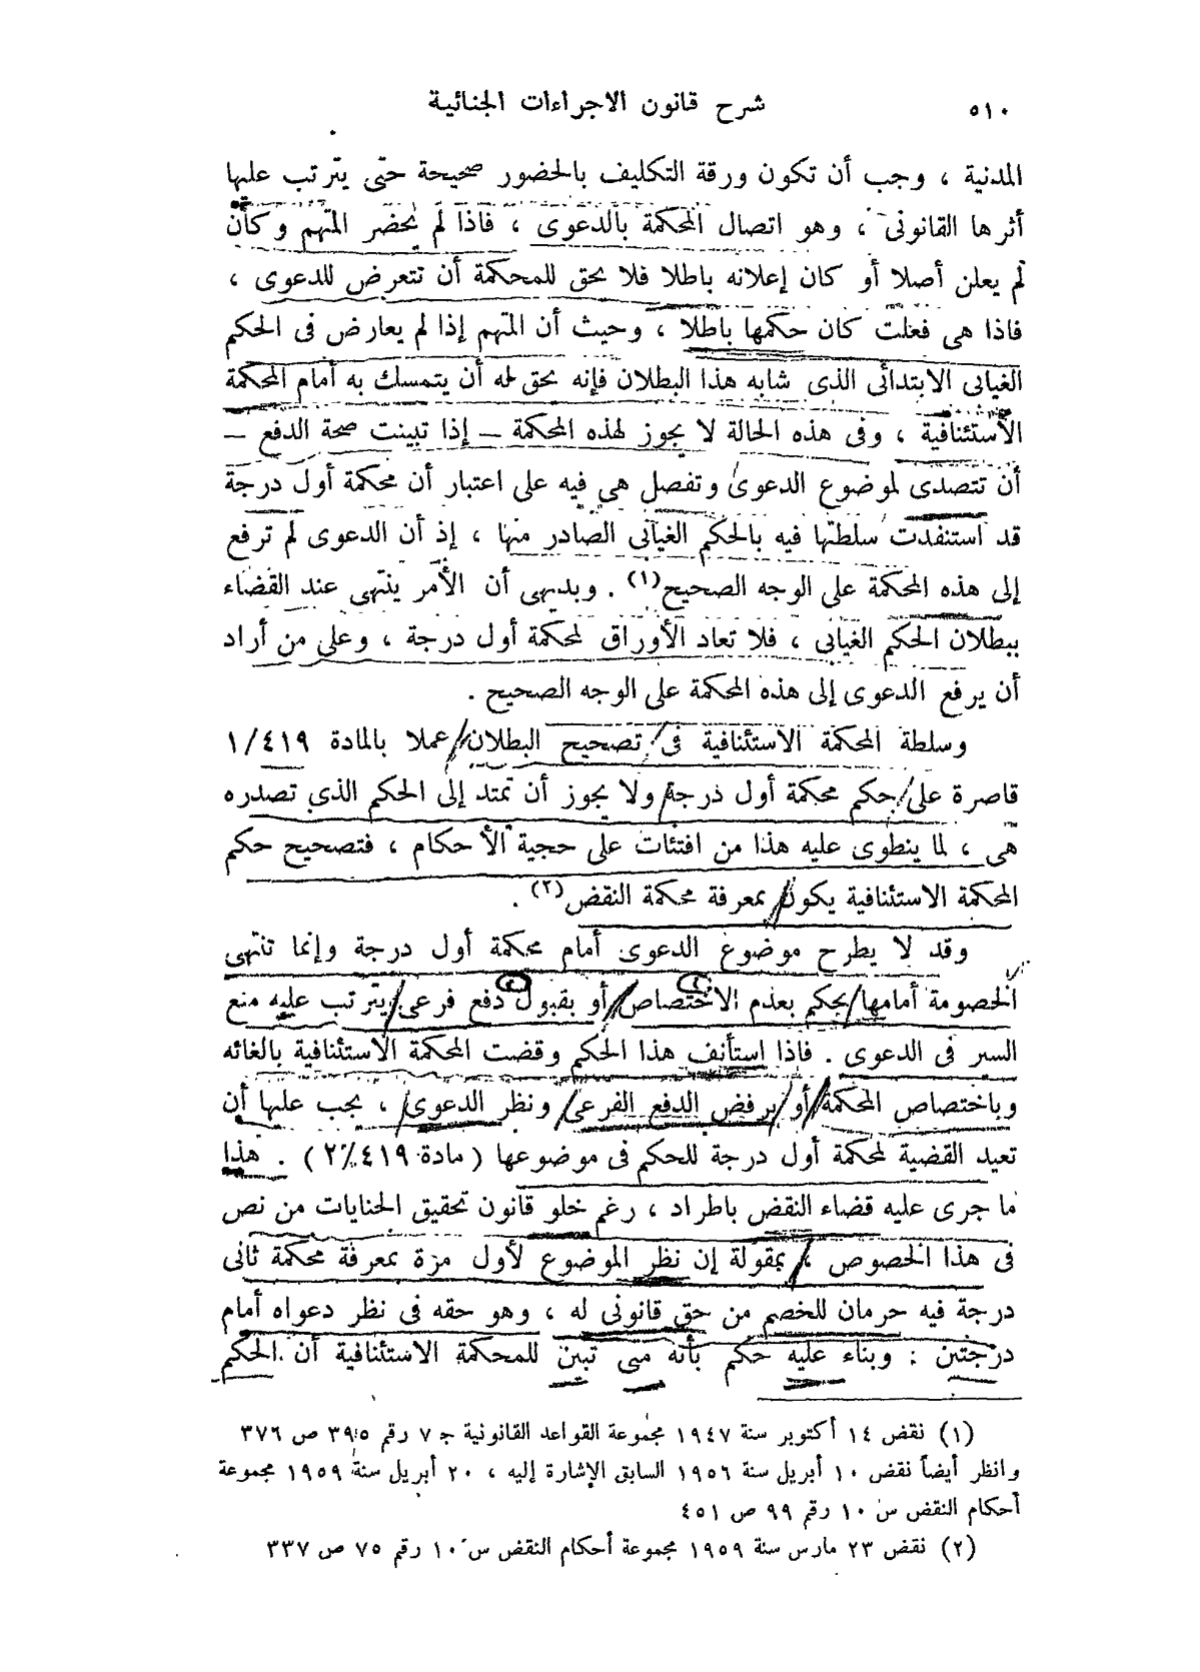 ٥١٠
شرح قانون الاجراءات الجنائية
المدنية ، وجب أن تكون ورقة التكليف بالحضور صحيحة حتى يترتب عليها
أثرها القانونى ، وهو اتصال المحكمة بالدعوى ، فاذا لم يحضر المتهم وكان
لم يعلن أصلا أو كان إعلانه باطلا فلا يحق للمحكمة أن تتعرض للدعوى ،
فاذا هى فعلت كان حكمها باطلا ، وحيث أن المتهم إذا لم يعارض فى الحكم
الغيابى الابتدائى الذى شابه هذا البطلان فإنه يحق له أن يتمسك به أمام المحكمة
الاستئنافية ، وفى هذه الحالة لا يجوز لهذه المحكمة – إذا تبينت صحة الدفع –
أن تتصدى لموضوع الدعوى وتفصل هى فيه على اعتبار أن محكمة أول درجة
قد استنفدت سلطتها فيه بالحكم الغيابى الصادر منها ، إذ أن الدعوى لم ترفع
إلى هذه المحكمة على الوجه الصحيح(١) . وبديهى أن الأمر ينتهى عند القضاء
ببطلان الحكم الغيابى ، فلا تعاد الأوراق لمحكمة أول درجة ، وعلى من أراد
أن يرفع الدعوى إلى هذه المحكمة على الوجه الصحيح .
وسلطة المحكمة الاستئنافية فى تصحيح البطلان عملا بالمادة ١/٤١٩
قاصرة على حكم محكمة أول درجة ولا يجوز أن تمتد إلى الحكم الذى تصدره
هى ، لما ينطوى عليه هذا من افتئات على حجية الأحكام ، فتصحيح حكم
المحكمة الاستئنافية يكون بمعرفة محكمة النقض(٢) .
وقد لا يطرح موضوع الدعوى أمام محكمة أول درجة وإنما تنتهى
الخصومة أمامها بحكم بعدم الاختصاص أو بقبول دفع فرعى يترتب عليه منع
السير فى الدعوى . فاذا استأنف هذا الحكم وقضت المحكمة الاستئنافية بالغائه
وباختصاص المحكمة أو برفض الدفع الفرعى ونظر الدعوى ، يجب عليها أن
تعيد القضية لمحكمة أول درجة للحكم فى موضوعها ( مادة ٢/٤١٩ ) . هذا
ما جرى عليه قضاء النقض باطراد ، رغم خلو قانون تحقيق الجنايات من نص
فى هذا الخصوص ، بمقولة إن نظر الموضوع لأول مرة بمعرفة محكمة ثانى
درجة فيه حرمان للخصم من حق قانونى له ، وهو حقه فى نظر دعواه أمام
درجتين : وبناء عليه حكم بأنه متى تبين للمحكمة الاستئنافية أن الحكم
(١) نقض ١٤ أكتوبر سنة ١٩٤٧ مجموعة القواعد القانونية ج ٧ رقم ٣٩٥ ص ٣٧٦
وانظر أيضاً نقض ١٠ أبريل سنة ١٩٥٦ السابق الإشارة إليه ، ٢٠ أبريل سنة ١٩٥٩ مجموعة
أحكام النقض س ١٠ رقم ٩٩ ص ٤٥١
(٢) نقض ٢٣ مارس سنة ١٩٥٩ مجموعة أحكام النقض س ١٠ رقم ٧٥ ص ٣٣٧